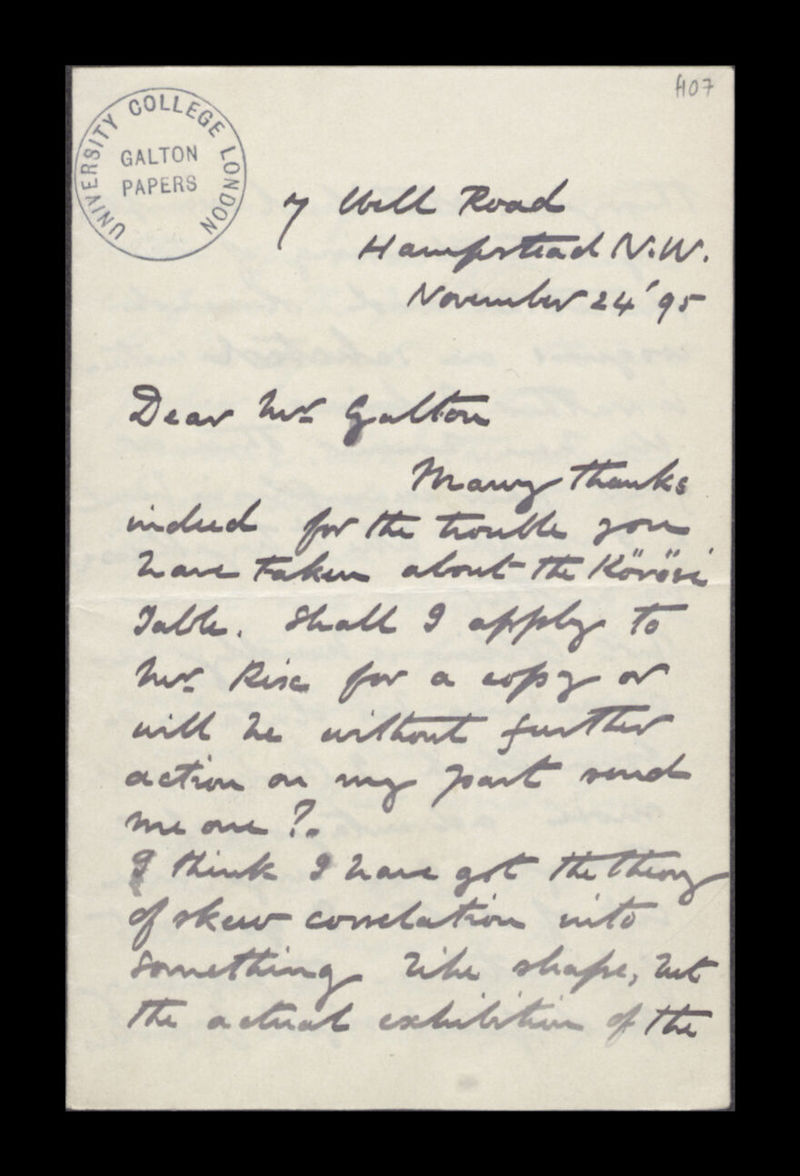 H07
UNIVERSITY COLLEGE LONDON
GALTON
PAPERS
7 Well Road
Hampstead N.W.
November 24' 95
Dear Mr Galton
Many thanks
indeed for the trouble you
have taken about the Körösi
Table. Shall I apply to
Mr. for a copy or
will he without further
action on my part send
me one?
I think I have got the theory
of skew correlation into
something like shape, but
the actual exhibition of the